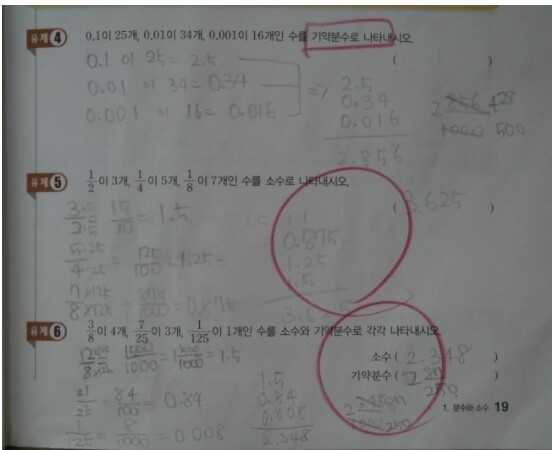 유제 4 0.1이 25개, 0.01이 34개, 0.001이 16개인 수를 기약분수로 나타내시오.
( )
0.1 이 25 = 2.5
0.01 이 34 = 0.34
0.001 이 16 = 0.016
⇒ 2.5
0.34
0.016
2.856
2 856 428
1000 500
유제 5 1/2이 3개, 1/4이 5개, 1/8이 7개인 수를 소수로 나타내시오.
( 3.625 )
3×5/2×5 = 15/10 = 1.5
5×25/4×25 = 125/100 = 1.25
7×125/8×125 = 875/1000 =
0.875
1.25
1.5
유제 6 3/8이 4개, 7/25이 3개, 1/125이 1개인 수를 소수와 기약분수로 각각 나타내시오.
소수 ( 2.348 )
기약분수 ( 2 87/250 )
= 1.5
21/25 = 84/100 = 0.84
1/125 = 8/1000 = 0.008
1.5
0.84
0.008
2.348
1. 분수와 소수 19